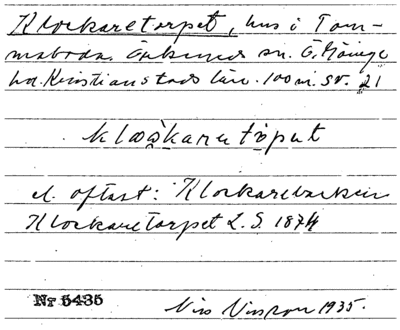 Klockaretorpet, hus i Tom-
maboda. Örkeneds sn. Ö. Göinge
hd. Kristianstads län. 100 m. SV. 21
klåkaretorpet
el. oftast: Klockarebacken
Klockaretorpet L. S. 1874
Nr 5435
1935.